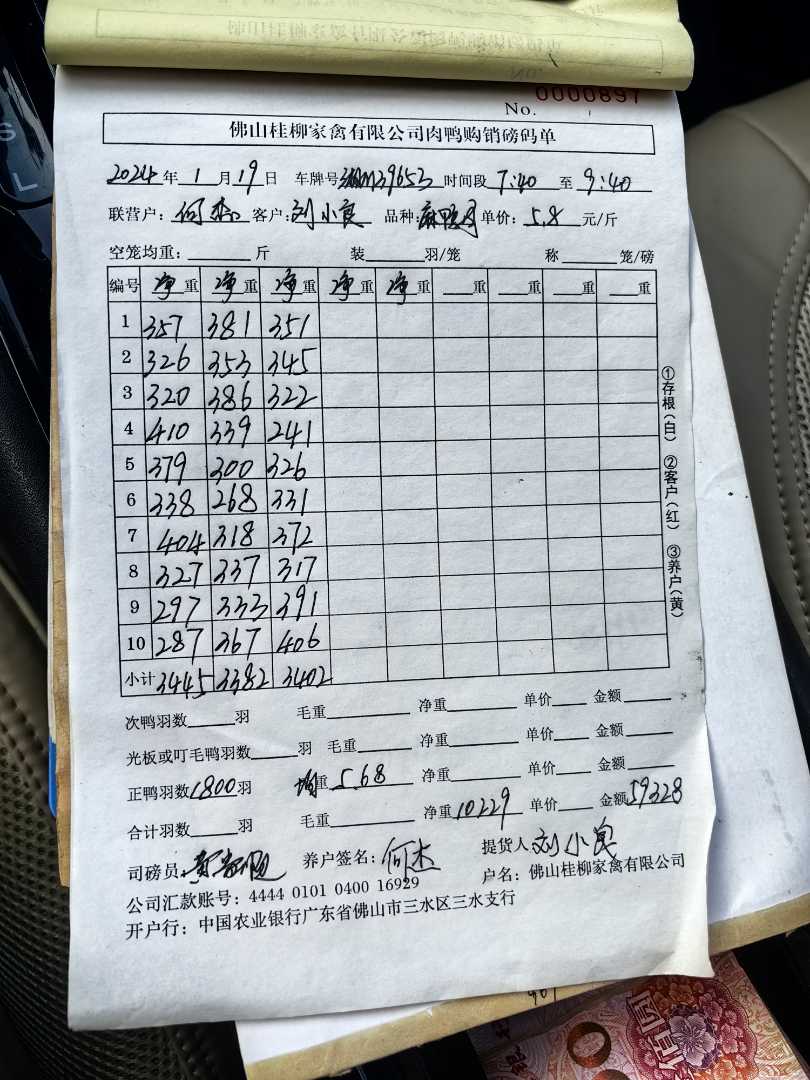 No. 0000897
佛山桂柳家禽有限公司肉鸭购销磅码单
2024年 1 月 19 日 车牌号 39653 时间段 7:40 至 9:40
联营户: 何杰 客户: 刘小良 品种: 单价: 5.8 元/斤
空笼均重: 斤 装 羽/笼 称 笼/磅
编号 净重 净重 净重 净重 净重 重 重 重 重
1 357 381 351
2 326 353 345
3 320 386 322
4 410 339 241
5 379 300 326
6 338 268 331
7 404 318 372
8 327 337 317
9 297 333 391
10 287 367 406
小计 3445 3382 3402
次鸭羽数 羽 毛重 净重 单价 金额
光板或叮毛鸭羽数 羽 毛重 净重 单价 金额
正鸭羽数 1800 羽 均重 5.68 净重 单价 金额
合计羽数 羽 毛重 净重 10229 单价 金额 59328
司磅员: 养户签名: 何杰 提货人 刘小良
公司汇款账号: 4444 0101 0400 16929 户名: 佛山桂柳家禽有限公司
开户行: 中国农业银行广东省佛山市三水区三水支行
①存根(白) ②客户(红) ③养户(黄)